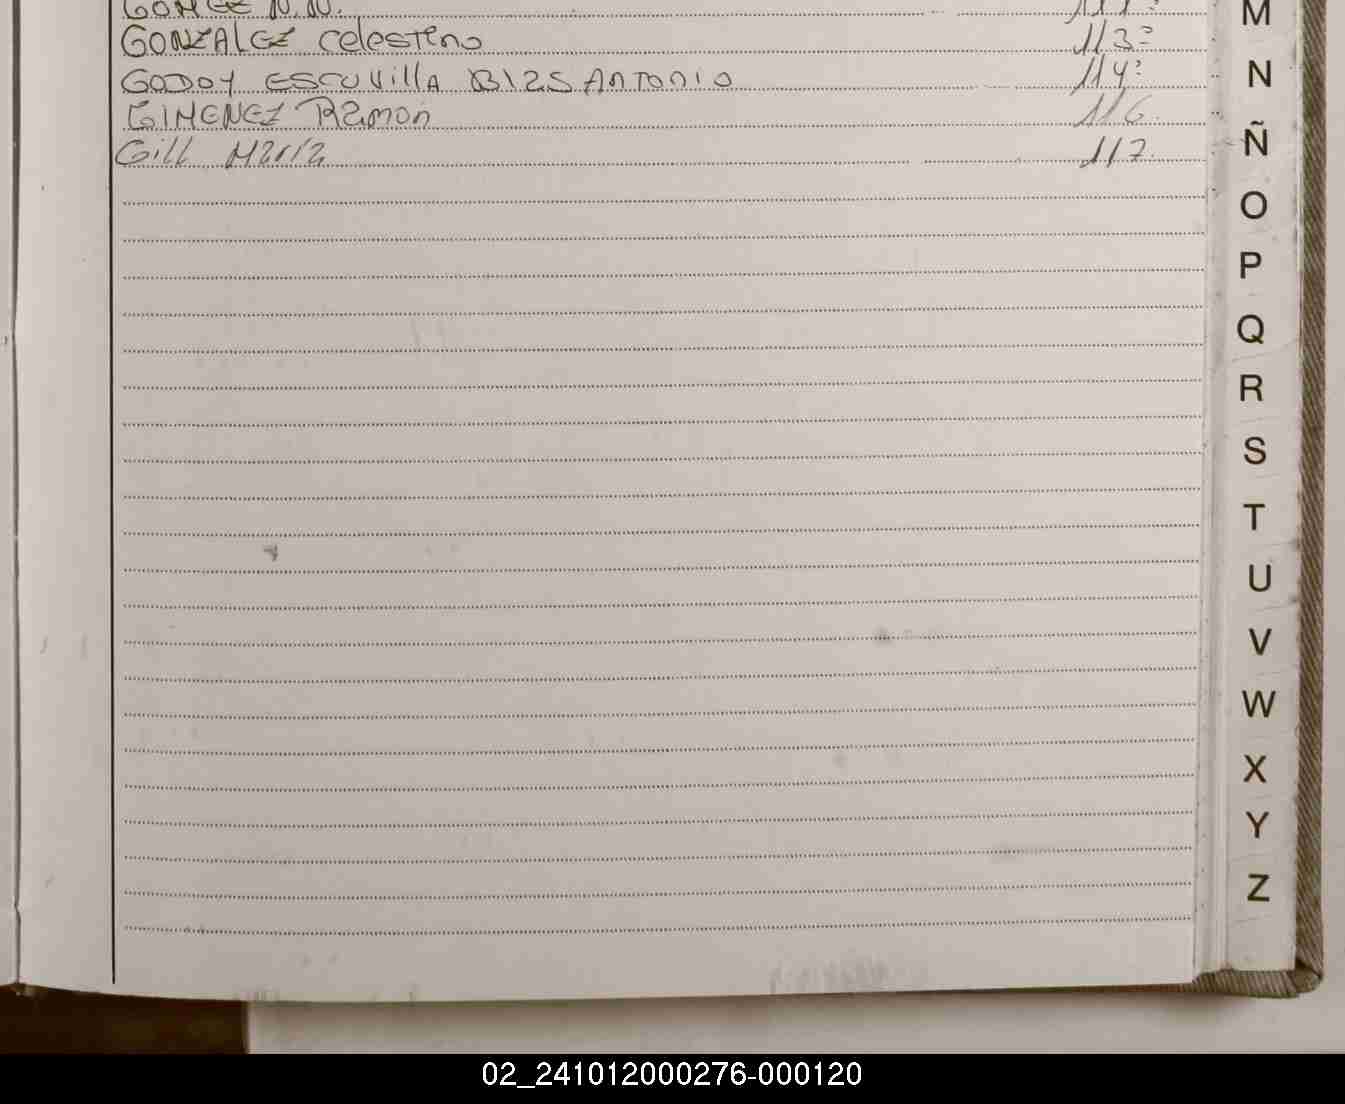 GOMEZ N.N. 111º
M
GONZALEZ Celestino 113º
GODOY ESCUVIllA BlaS ANTONIO 114º
N
GIMENEZ Ramon 116.
Gill Maria 117.
Ñ
O
P
Q
R
S
T
U
V
W
X
Y
Z
02_241012000276-000120